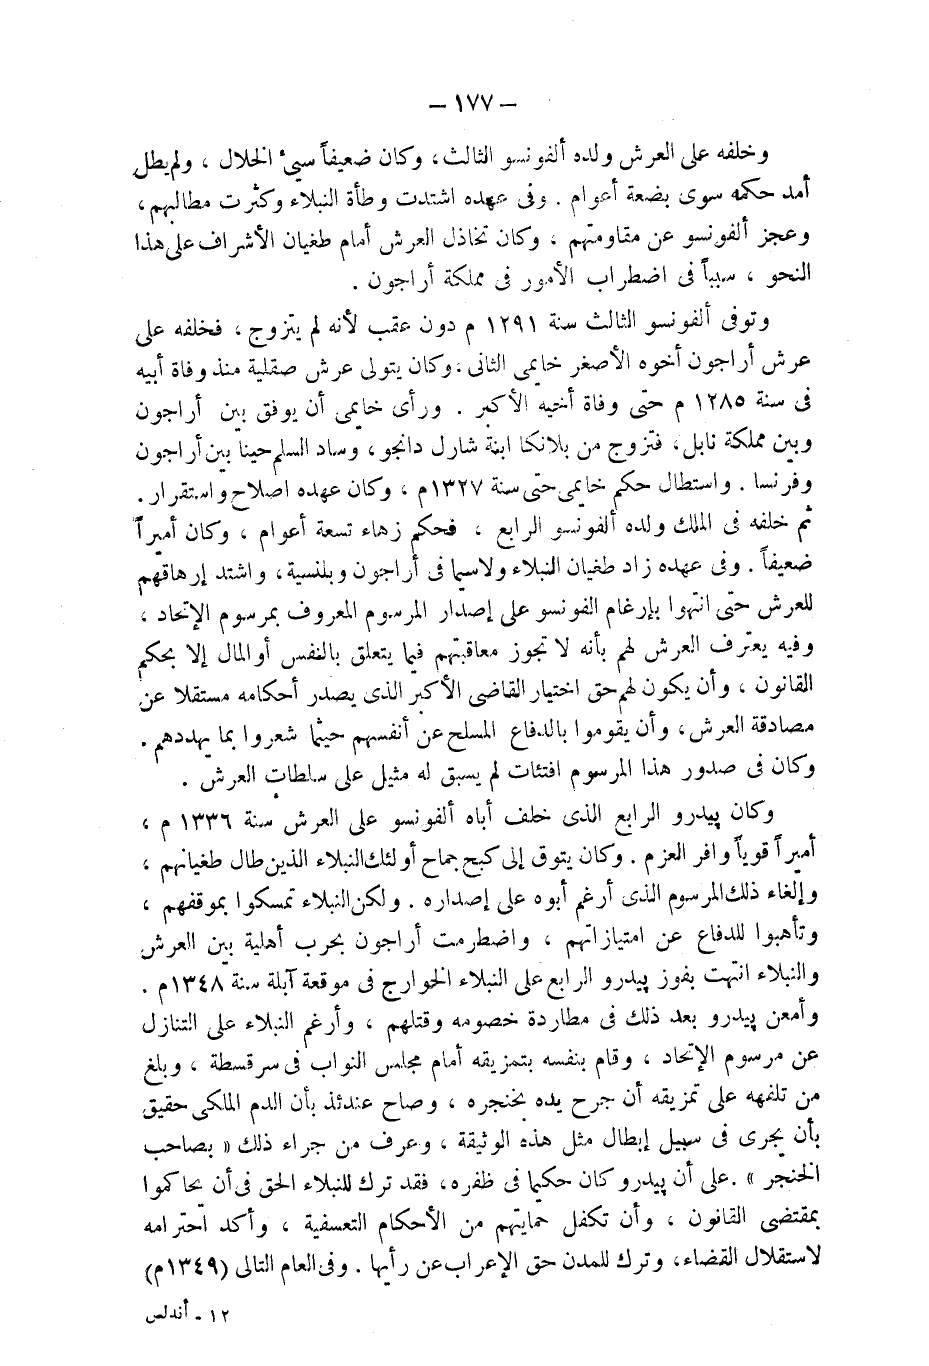 — ١٧٧ —
وخلفه على العرش ولده ألفونسو الثالث، وكان ضعيفاً سيئ الخلال ، ولم يطل
أمد حكمه سوى بضعة أعوام . وفى عهده اشتدت وطأة النبلاء وكثرت مطالبهم،
وعجز ألفونسو عن مقاومتهم ، وكان تخاذل العرش أمام طغيان الأشراف على هذا
النحو ، سبباً فى اضطراب الأمور فى مملكة أراجون .
وتوفى ألفونسو الثالث سنة ١٢٩١ م دون عقب لأنه لم يتزوج ، فخلفه على
عرش أراجون أخوه الأصغر خايمى الثانى ، وكان يتولى عرش صقلية منذ وفاة أبيه
فى سنة ١٢٨٥ م حتى وفاة أخيه الأكبر . ورأى خايمى أن يوفق بين أراجون
وبين مملكة نابل، فتزوج من بلانكا ابنة شارل دانجو ، وساد السلم حينا بين أراجون
وفرنسا . واستطال حكم خايمى حتى سنة ١٣٢٧م ، وكان عهده اصلاح واستقرار .
ثم خلفه فى الملك ولده ألفونسو الرابع ، فحكم زهاء تسعة أعوام ، وكان أميراً
ضعيفاً . وفى عهده زاد طغيان النبلاء ولاسيما فى أراجون وبلنسية، واشتد إرهاقهم
للعرش حتى انتهوا بإرغام الفونسو على إصدار المرسوم المعروف بمرسوم الإتحاد ،
وفيه يعترف العرش لهم بأنه لا تجوز معاقبتهم فيما يتعلق بالنفس أو المال إلا بحكم
القانون ، وأن يكون لهم حق اختيار القاضى الأكبر الذى يصدر أحكامه مستقلا عن
مصادقة العرش، وأن يقوموا بالدفاع المسلح عن أنفسهم حيثما شعروا بما يهددهم .
وكان فى صدور هذا المرسوم افتئات لم يسبق له مثيل على سلطات العرش .
وكان پيدرو الرابع الذى خلف أباه ألفونسو على العرش سنة ١٣٣٦ م ،
أميراً قوياً وافر العزم . وكان يتوق إلى كبح جماح أولئك النبلاء الذين طال طغيانهم ،
وإلغاء ذلك المرسوم الذى أرغم أبوه على إصداره . ولكن النبلاء تمسكوا بموقفهم ،
وتأهبوا للدفاع عن امتيازاتهم ، واضطرمت أراجون بحرب أهلية بين العرش
والنبلاء انتهت بفوز پيدرو الرابع على النبلاء الخوارج فى موقعة آبلة سنة ١٣٤٨م .
وأمعن پيدرو بعد ذلك فى مطاردة خصومه وقتلهم ، وأرغم النبلاء على التنازل
عن مرسوم الإتحاد ، وقام بنفسه بتمزيقه أمام مجلس النواب فى سرقسطة ، وبلغ
من تلفهه على تمزيقه أن جرح يده بخنجره ، وصاح عندئذ بأن الدم الملكى حقيق
بأن يجرى فى سبيل إبطال مثل هذه الوثيقة ، وعرف من جراء ذلك « بصاحب
الخنجر » . على أن پيدرو كان حكيما فى ظفره، فقد ترك للنبلاء الحق فى أن يحاكموا
بمقتضى القانون ، وأن تكفل حمايتهم من الأحكام التعسفية ، وأكد احترامه
لاستقلال القضاء، وترك للمدن حق الإعراب عن رأيها . وفى العام التالى (١٣٤٩م)
١٢ - أندلس